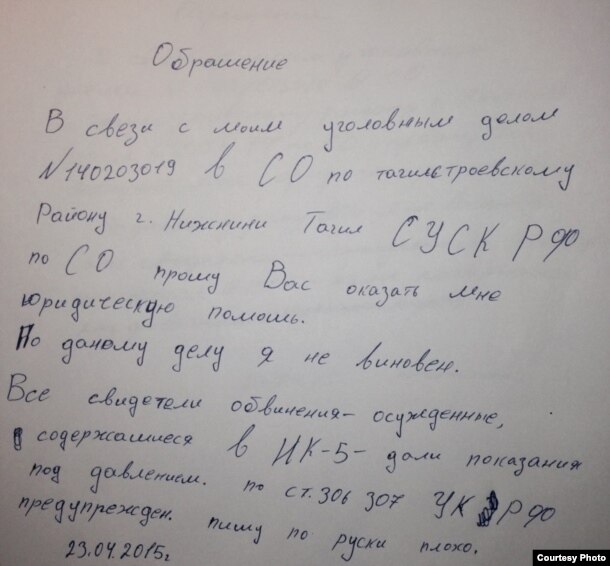 Обрашение
В свези с моим уголовным делом
N140203019 в СО по тагилстроевскому
Району г. Нижнини Тагил СУСК РФ
по СО прошу Вас оказать мне
юридическую помошь.
По даному делу я не виновен.
Все свидетели обвинения- осужденные,
содержашиеся в ИК-5- дали показания
под давлением. по ст. 306 307 УК РФ
предупрежден. пишу по руски плохо.
23.04.2015г
Courtesy Photo